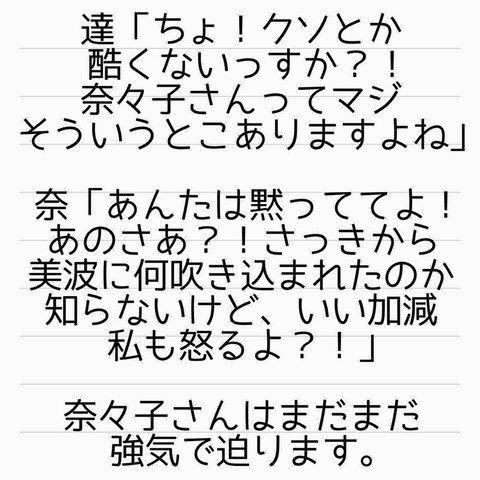 達「ちょ！クソとか
酷くないっすか？！
奈々子さんってマジ
そういうとこありますよね」
奈「あんたは黙っててよ！
あのさあ？！さっきから
美波に何吹き込まれたのか
知らないけど、いい加減
私も怒るよ？！」
奈々子さんはまだまだ
強気で迫ります。